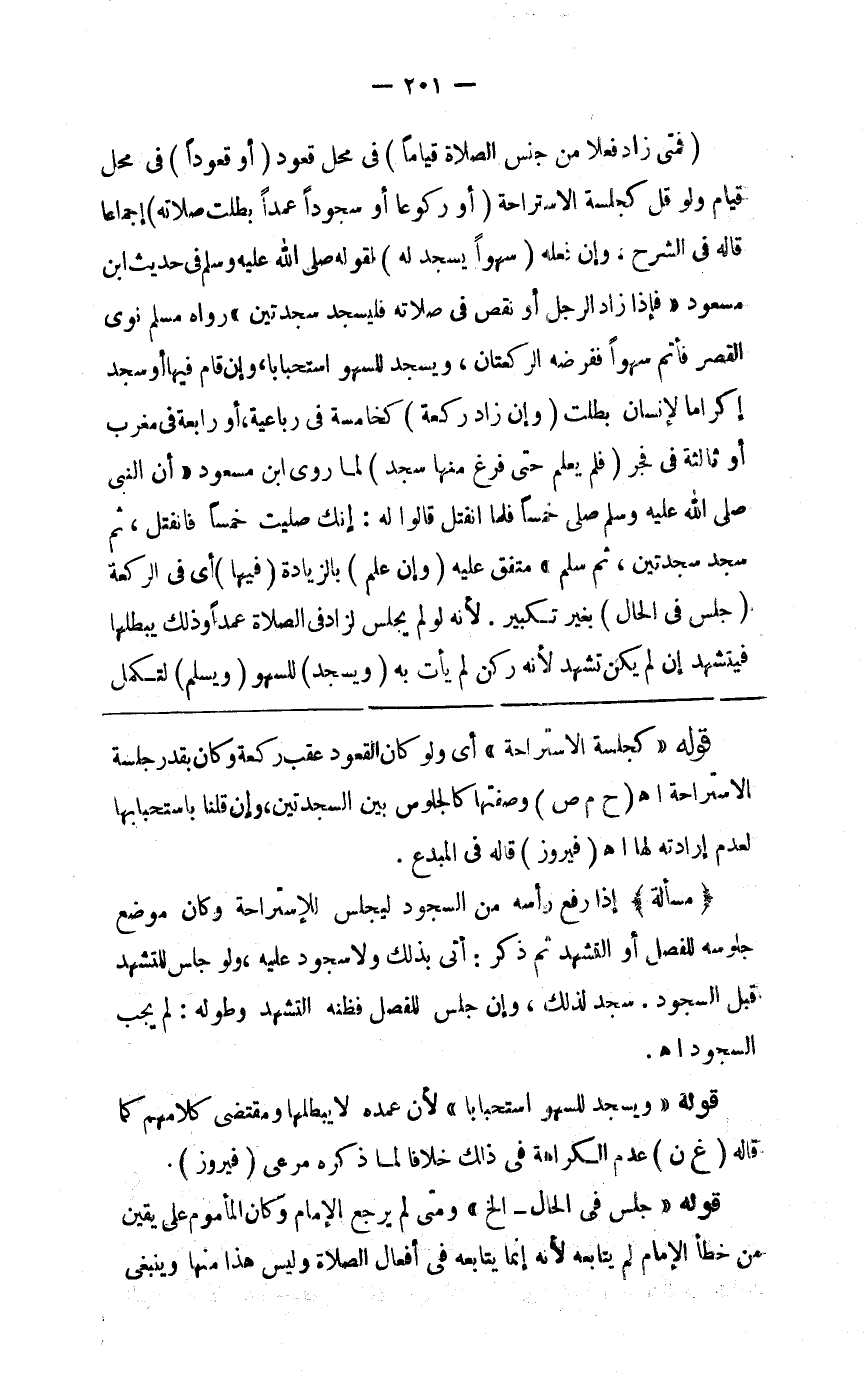 — ٢٠١ —
( فمتى زاد فعلا من جنس الصلاة قياماً ) فى محل قعود ( أو قعوداً ) فى محل
قيام ولو قل كجلسة الاستراحة ( أو ركوعا أو سجوداً عمداً بطلت صلاته ) إجماعا
قاله فى الشرح ، وإن فعله ( سهواً يسجد له ) لقوله صلى الله عليه وسلم فى حديث ابن
مسعود « فإذا زاد الرجل أو نقص فى صلاته فليسجد سجدتين » رواه مسلم نوى
القصر فأتم سهواً ففرضه الركعتان ، ويسجد للسهو استحبابا ، وإن قام فيها أو سجد
إكراما لإنسان بطلت ( وإن زاد ركعة ) كخامسة فى رباعية ، أو رابعة فى مغرب
أو ثالثة فى فجر ( فلم يعلم حتى فرغ منها سجد ) لما روى ابن مسعود « أن النبى
صلى الله عليه وسلم صلى خمساً فلما انفتل قالوا له : إنك صليت خمساً فانفتل ، ثم
سجد سجدتين ، ثم سلم » متفق عليه ( وإن علم ) بالزيادة ( فيها ) أى فى الركعة
( جلس فى الحال ) بغير تكبير . لأنه لو لم يجلس لزاد فى الصلاة عمداً وذلك يبطلها
فيتشهد إن لم يكن تشهد لأنه ركن لم يأت به ( ويسجد ) للسهو ( ويسلم ) لتكمل
قوله « كجلسة الاستراحة » أى ولو كان القعود عقب ركعة وكان بقدر جلسة
الاستراحة اه ( ح م ص ) وصفتها كالجلوس بين السجدتين ، وإن قلنا باستحبابها
لعدم إرادته لها اه ( فيروز ) قاله فى المبدع .
﴿ مسألة ﴾ إذا رفع رأسه من السجود ليجلس للإستراحة وكان موضع
جلوسه للفصل أو التشهد ثم ذكر : أتى بذلك ولا سجود عليه ، ولو جلس للتشهد
قبل السجود . سجد لذلك ، وإن جلس للفصل فظنه التشهد وطوله : لم يجب
السجود اه .
قوله « ويسجد للسهو استحبابا » لأن عمده لا يبطلها ومقتضى كلامهم كما
قاله ( غ ن ) عدم الكراهة فى ذلك خلافا لما ذكره مرعى ( فيروز ) .
قوله « جلس فى الحال ــ الخ » ومتى لم يرجع الإمام وكان المأموم على يقين
من خطأ الإمام لم يتابعه لأنه إنما يتابعه فى أفعال الصلاة وليس هذا منها وينبغى